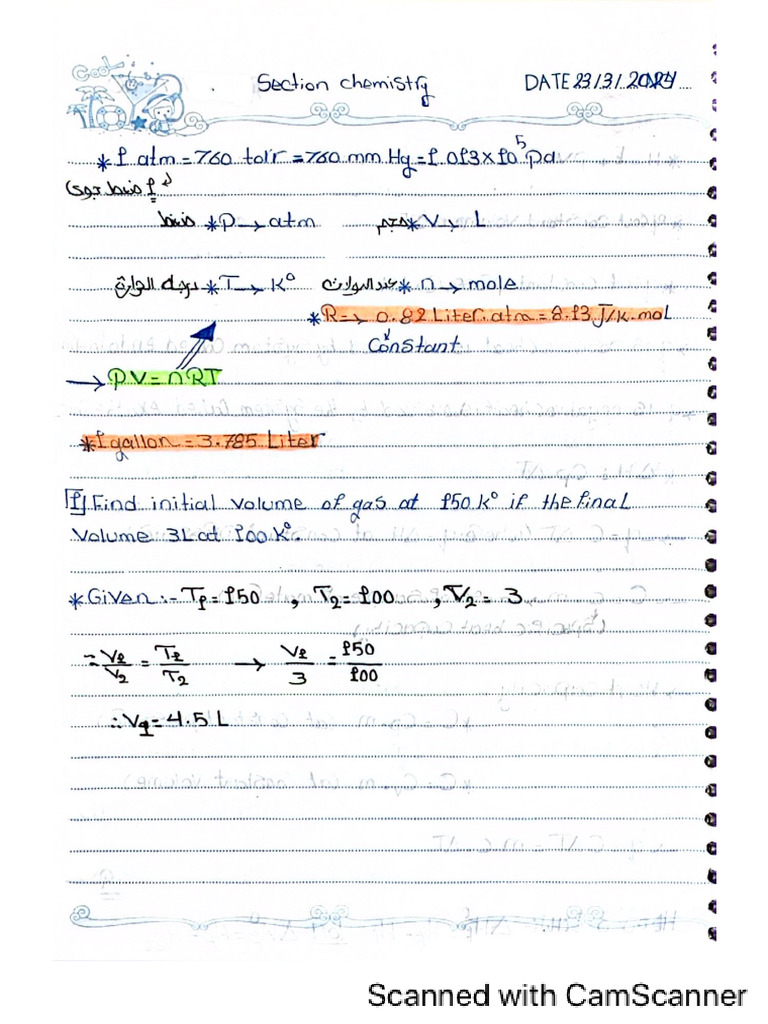 Cool
Section chemistry
DATE 23/3/2024
* 1 atm = 760 torr = 760 mm Hg = 1.013 × 10^5 pa
1 ضغط جوى
ضغط * P → atm حجم * V → L
درجه الحرارة * T → K° عدد المولات * n → mole
* R → 0.82 Liter.atm = 8.13 J/k.mol
Constant
→ PV = nRT
* 1 gallon = 3.785 Liter
1] Find initial volume of gas at 150 K° if the final
volume 3L at 100 K°.
* Given :- T1 = 150 , T2 = 100 , V2 = 3
= V1/V2 = T1/T2 → V1/3 = 150/100
∴ V1 = 4.5 L
Scanned with CamScanner